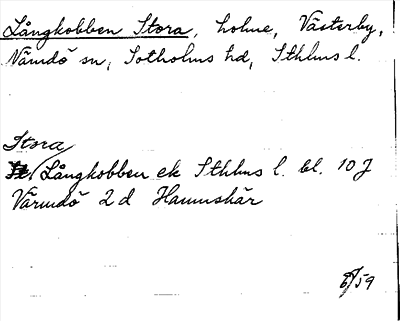 Långkobben Stora, holme, Västerby,
Värmdö sn, Sotholms hd, Sthlms l.
Stora
Långkobben ek Sthlms l. bl. 10 J
Värmdö 2 d Hamnskär
/59